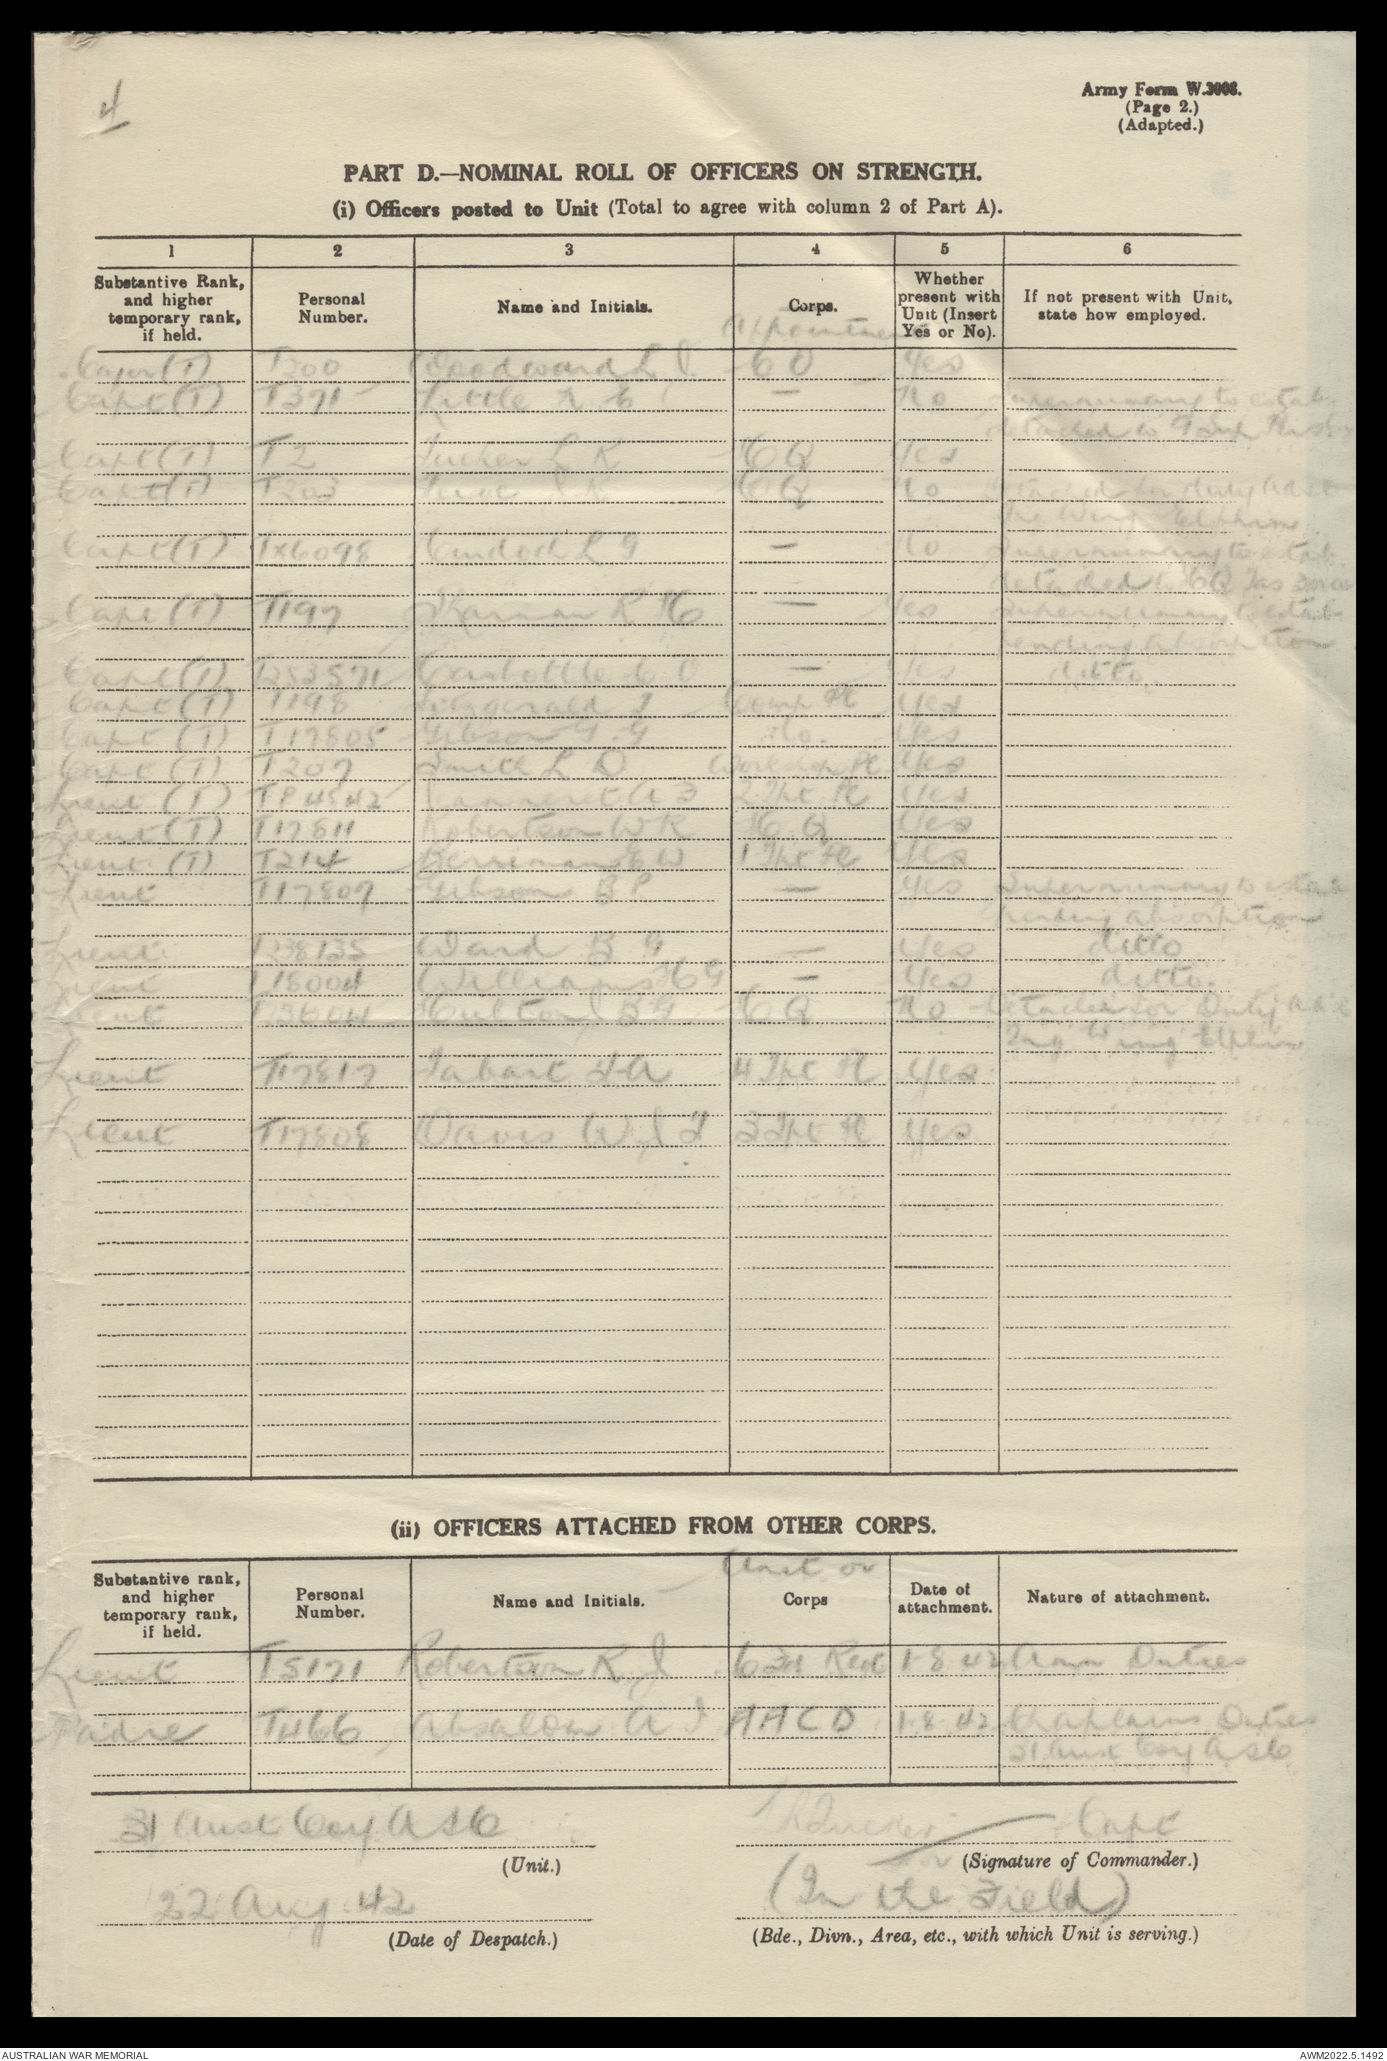 4
Army Form W.3008.
(Page 2.)
(Adapted.)
PART D.—NOMINAL ROLL OF OFFICERS ON STRENGTH.
(i) Officers posted to Unit (Total to agree with column 2 of Part A).
1 2 3 4 5 6
Substantive Rank, and higher temporary rank, if held. Personal Number. Name and Initials. Corps. Appointment Whether present with Unit (Insert Yes or No). If not present with Unit, state how employed.
Major (T) T200 Woodward L J CO Yes
Capt (T) T371 Little A E — No Supernumary to estab.
detached to 9 Sup
Capt (T) T2 Tucker L K HQ Yes
Capt (T) T203 HQ No detached for duty
Wing Elphin
Capt (T) TX6098 L G — No Supernumary to estab
detached to HQ Tas
Capt (T) T197 K H — Yes Supernumary to estab
pending absorption
Capt (T) T253571 C O — Yes ditto
Capt (T) T198 Fitzgerald J Comp Pl Yes
Capt (T) T17805 Gibson G G do. Yes
Capt (T) T207 Smith L D Workshop Pl Yes
Lieut (T) TP4542 Jeanneret A B 2 Tpt Pl Yes
Lieut (T) T17811 Robertson W R HQ Yes
Lieut (T) T214 Berriman E W 1 Tpt Pl Yes
Lieut T17807 Gibson B P — Yes Supernumary to estab
pending absorption
Lieut T238135 Ward B G — Yes ditto
Lieut T18004 Williams H G — Yes ditto.
Lieut T23604 B G HQ No Detached for Duty
Wing Elphin
Lieut T17817 Tabart J A 4 Tpt Pl Yes
Lieut T17808 Davis W J T 3 Tpt Pl Yes
(ii) OFFICERS ATTACHED FROM OTHER CORPS.
Substantive rank, and higher temporary rank, if held. Personal Number. Name and Initials. Unit or Corps Date of attachment. Nature of attachment.
Lieut T5171 Robertson R J 1-8-42 Duties
Padre T466 Absalom A J AACD 1-8-42 Chaplains Duties
31 Aust Coy ASC
31 Aust Coy ASC
L K Tucker Capt
(Unit.)
for (Signature of Commander.)
22 Aug 42
(In the Field)
(Date of Despatch.)
(Bde., Divn., Area, etc., with which Unit is serving.)
AUSTRALIAN WAR MEMORIAL
AWM2022.5.1492